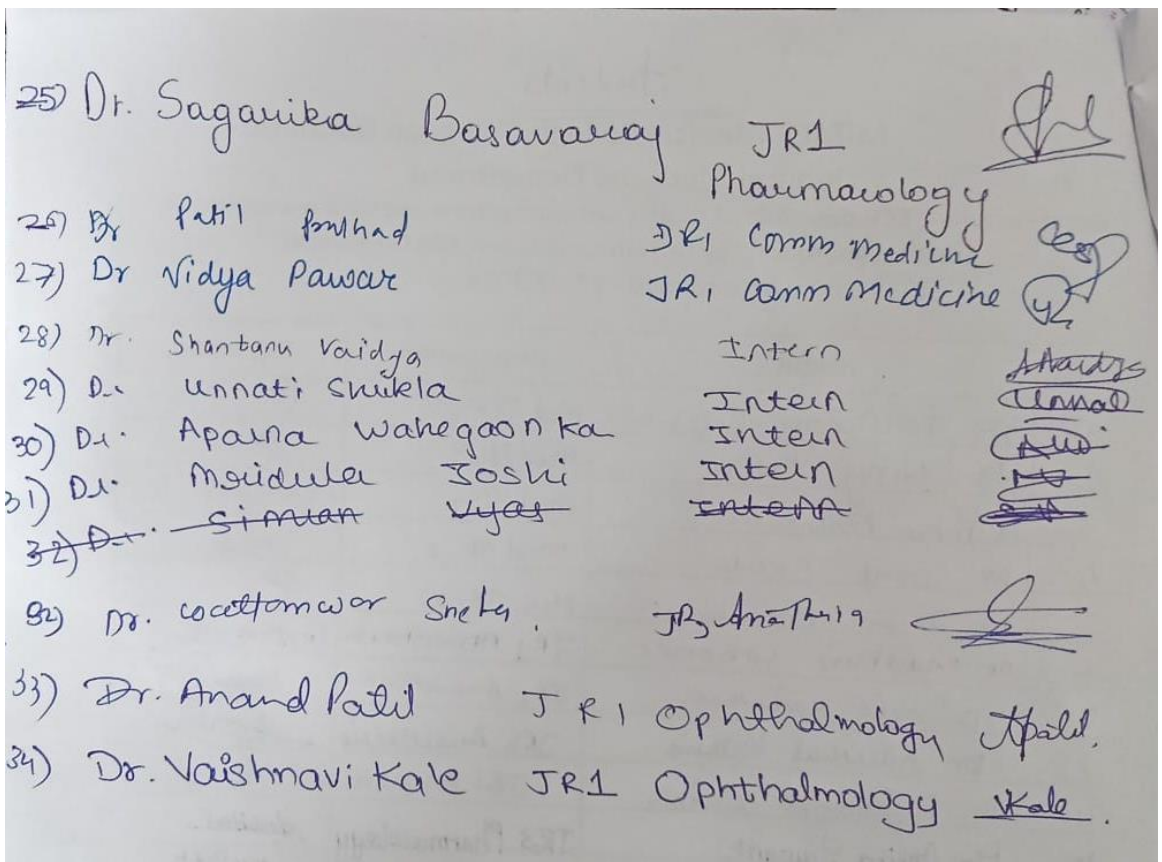 25) Dr. Sagarika Basavaraj JR1
Pharmacology
26) Dr Patil JR1 Comm Medicine
27) Dr Vidya Pawar JR1 Comm Medicine
28) Dr. Shantanu Vaidya Intern
29) Dr. Unnati Shukla Intern Unnati
30) Dr. Aparna Wahegaonka Intern
31) Dr. Mridula Joshi Intern
32) Dr. Simran Vyas Intern
32) Dr. Sneha JR3
33) Dr. Anand Patil JR1 Ophthalmology APatil.
34) Dr. Vaishnavi Kale JR1 Ophthalmology VKale.